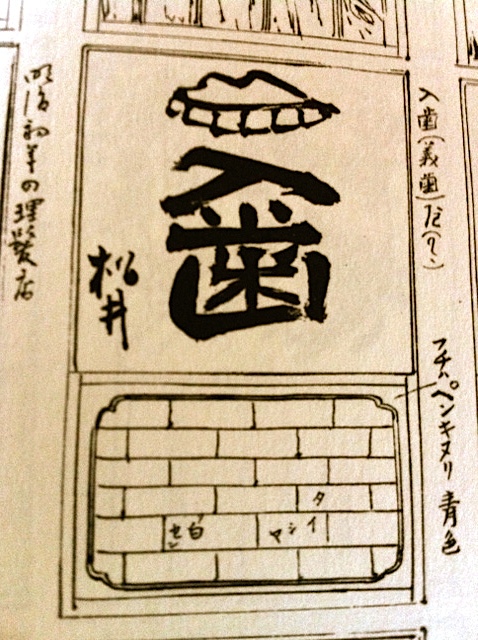 入歯(義歯)だ(く)
入歯
松井
明治初年の理髪店
フチハペンキヌリ 青色
タイシヤ
白セン